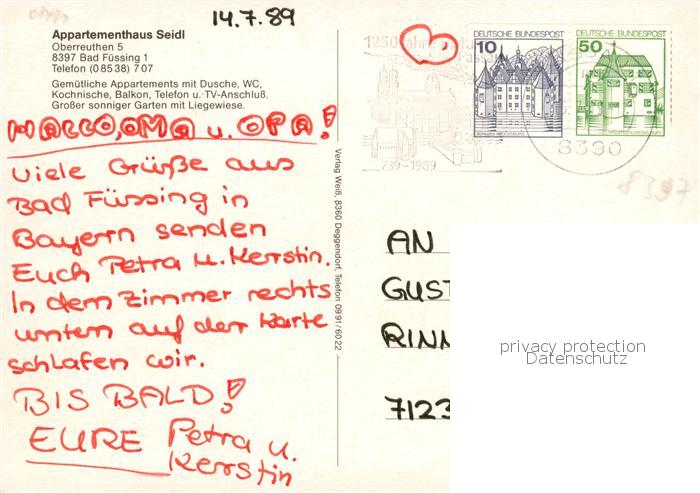 14.7.89
Appartementhaus Seidl
Oberreuthen 5
8397 Bad Füssing 1
Telefon (0 85 38) 7 07
Gemütliche Appartements mit Dusche, WC,
Kochnische, Balkon, Telefon u. TV-Anschluß.
Großer sonniger Garten mit Liegewiese.
HALLO, OMA u. OPA!
Viele Grüße aus
Bad Füssing in
Bayern senden
Euch Petra u. Kerstin.
In dem Zimmer rechts
unten auf der Karte
schlafen wir.
BIS BALD!
EURE Petra u.
Kerstin
Verlag Weiß, 8360 Deggendorf, Telefon 09 91/60 22
1250 Jahre
Passau
739-1989
10
DEUTSCHE BUNDESPOST
SCHLOSS GLÜCKSBURG
50
DEUTSCHE BUNDESPOST
8390
8397
AN
GUST
RINN
7123
privacy protection
Datenschutz